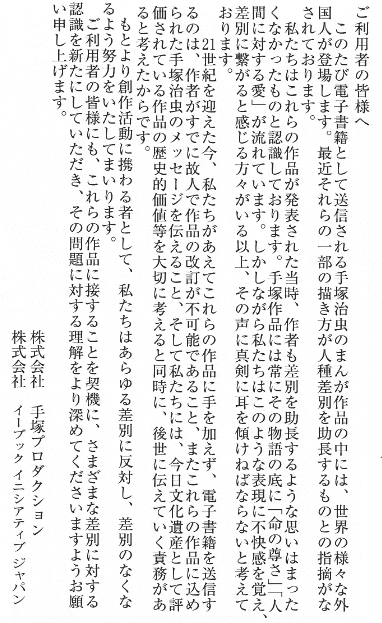 ご利用者の皆様へ
　このたび電子書籍として送信される手塚治虫のまんが作品の中には、世界の様々な外
国人が登場します。最近それらの一部の描き方が人種差別を助長するものとの指摘がな
されております。
　私たちはこれらの作品が発表された当時、作者も差別を助長するような思いはまった
くなかったものと認識しております。手塚作品には常にその物語の底に「命の尊さ」「人
間に対する愛」が流れています。しかしながら私たちはこのような表現に不快感を覚え、
差別に繋がると感じる方々がいる以上、その声に真剣に耳を傾けねばならないと考えて
おります。
　21世紀を迎えた今、私たちがあえてこれらの作品に手を加えず、電子書籍を送信す
るのは、作者がすでに故人で作品の改訂が不可能であること、またこれらの作品に込め
られた手塚治虫のメッセージを伝えること、そして私たちには、今日文化遺産として評
価されている作品の歴史的価値等を大切に考えると同時に、後世に伝えていく責務があ
ると考えたからです。
　もとより創作活動に携わる者として、私たちはあらゆる差別に反対し、差別のなくな
るよう努力をいたしてまいります。
　ご利用者の皆様にも、これらの作品に接することを契機に、さまざまな差別に対する
認識を新たにしていただき、その問題に対する理解をより深めてくださいますようお願
い申し上げます。
株式会社　手塚プロダクション
株式会社　イーブック イニシアティブ ジャパン